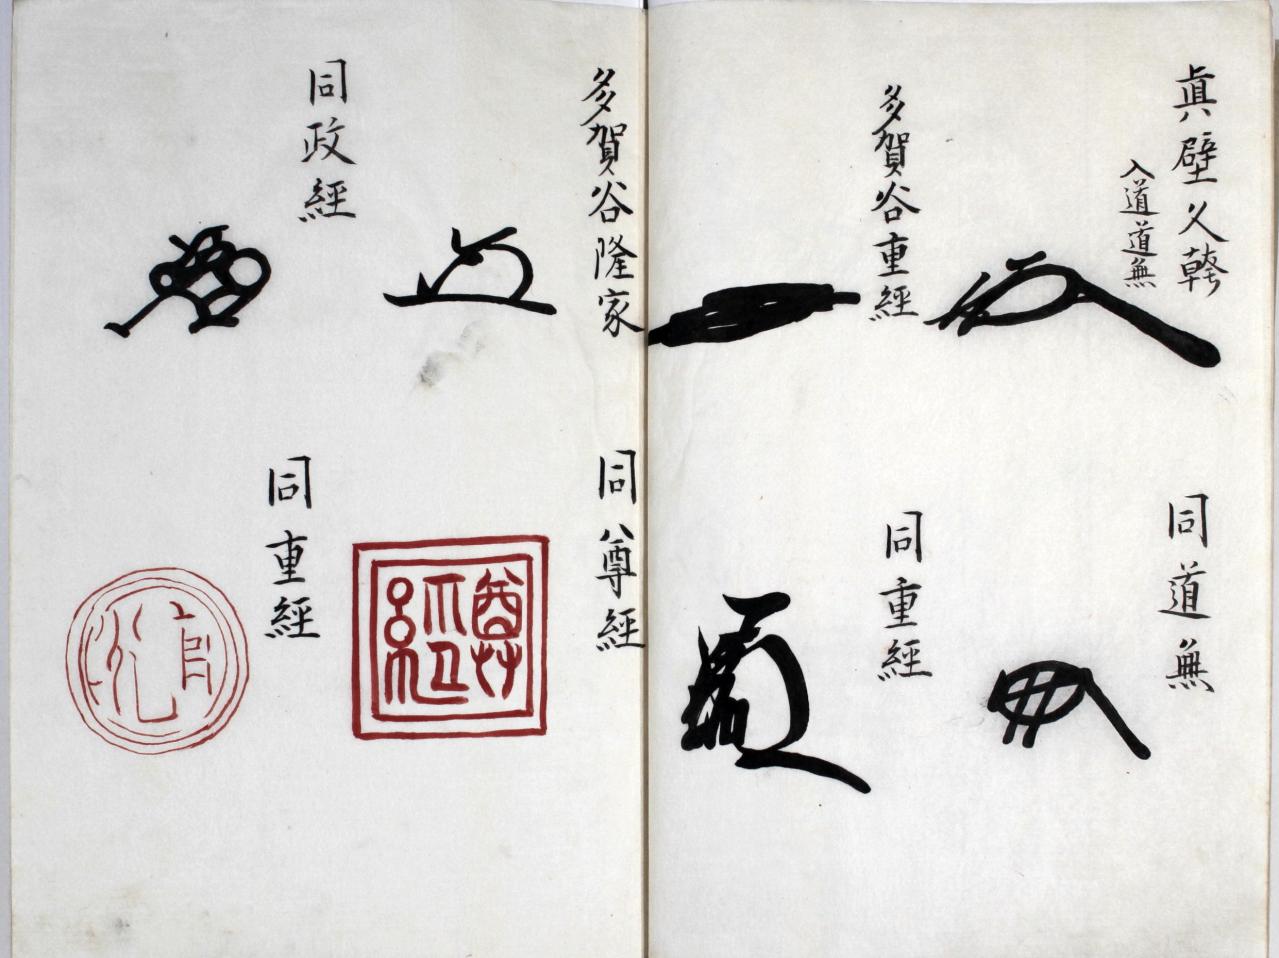 眞壁久幹
入道道無
同道無
多賀谷重經
同重經
多賀谷隆家
同尊經
尊經
同政經
同重經